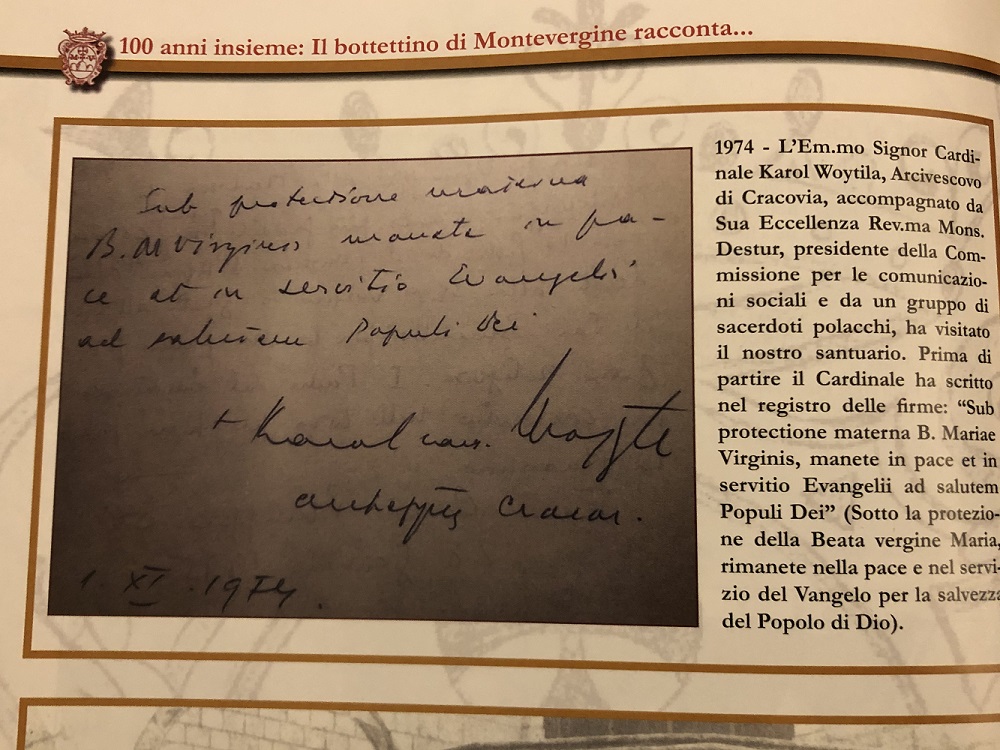 100 anni insieme: Il bottettino di Montevergine racconta...
Sub protectione materna
B. M Virginis manete in pa-
ce et in servitio Evangelii
ad salutem Populi Dei
+ Karol card. Wojtyła
archeppus Cracov.
1 XI. 1974.
1974 - L'Em.mo Signor Cardi-
nale Karol Woytila, Arcivescovo
di Cracovia, accompagnato da
Sua Eccellenza Rev.ma Mons.
Destur, presidente della Com-
missione per le comunicazio-
ni sociali e da un gruppo di
sacerdoti polacchi, ha visitato
il nostro santuario. Prima di
partire il Cardinale ha scritto
nel registro delle firme: “Sub
protectione materna B. Mariae
Virginis, manete in pace et in
servitio Evangelii ad salutem
Populi Dei” (Sotto la protezio-
ne della Beata vergine Maria,
rimanete nella pace e nel servi-
zio del Vangelo per la salvezza
del Popolo di Dio).